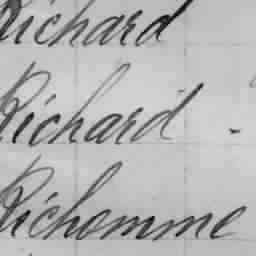 Richard
Richard -
Richomme